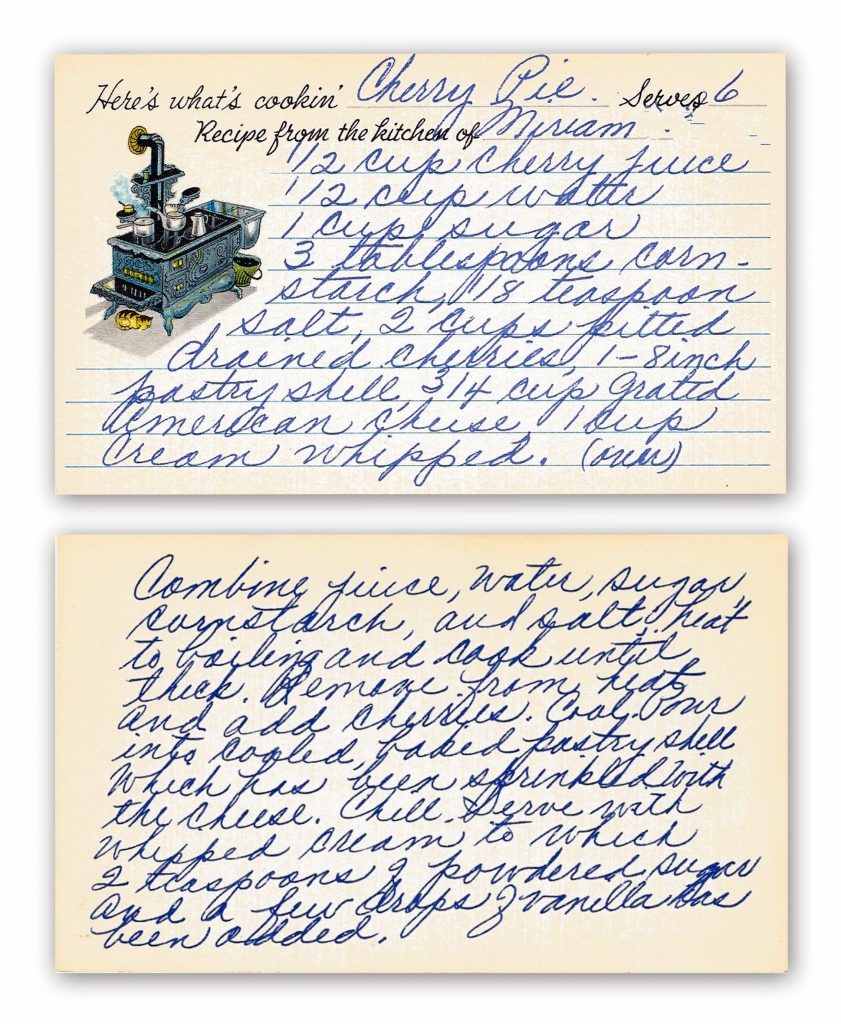 Here's what's cookin' Cherry Pie. Serves 6
Recipe from the kitchen of Miriam
1/2 cup cherry juice
1/2 cup water
1 cup sugar
3 tablespoons corn-
starch, 1/8 teaspoon
salt, 2 cups pitted
drained cherries, 1-8 inch
pastry shell, 3/4 cup grated
American cheese, 1 cup
cream whipped. (over)
Combine juice, water, sugar,
cornstarch, and salt, heat
to boiling and cook until
thick. Remove from heat,
and add cherries. Cool. Pour
into cooled, baked pastry shell
which has been sprinkled with
the cheese. Chill. Serve with
whipped cream to which
2 teaspoons of powdered sugar
and a few drops of vanilla has
been added.